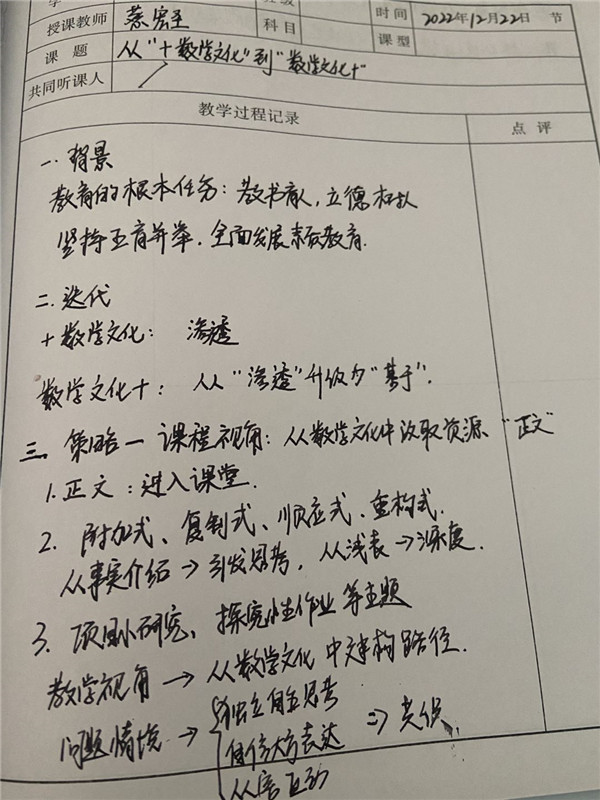 授课教师 蔡宏圣 科目 时间 2022年12月22日 节
课题 从“+数学文化”到“数学文化+” 课型
共同听课人
教学过程记录 点评
一. 背景
教育的根本任务：教书育人，立德树人
坚持五育并举，全面发展素质教育.
二. 迭代
+数学文化： 渗透
数学文化+： 从“渗透”升级为“基于”.
三. 策略一 课程视角：从数学文化中汲取资源 “正文”
1. 正文：进入课堂.
2. 附加式、复制式、顺应式、重构式.
从事实介绍→引发思考，从浅表→深度.
3. 项目小研究、探究性作业等主题
教学视角→从数学文化中建构路径.
问题情境→ 独立自主思考
自信大方表达 ⇒